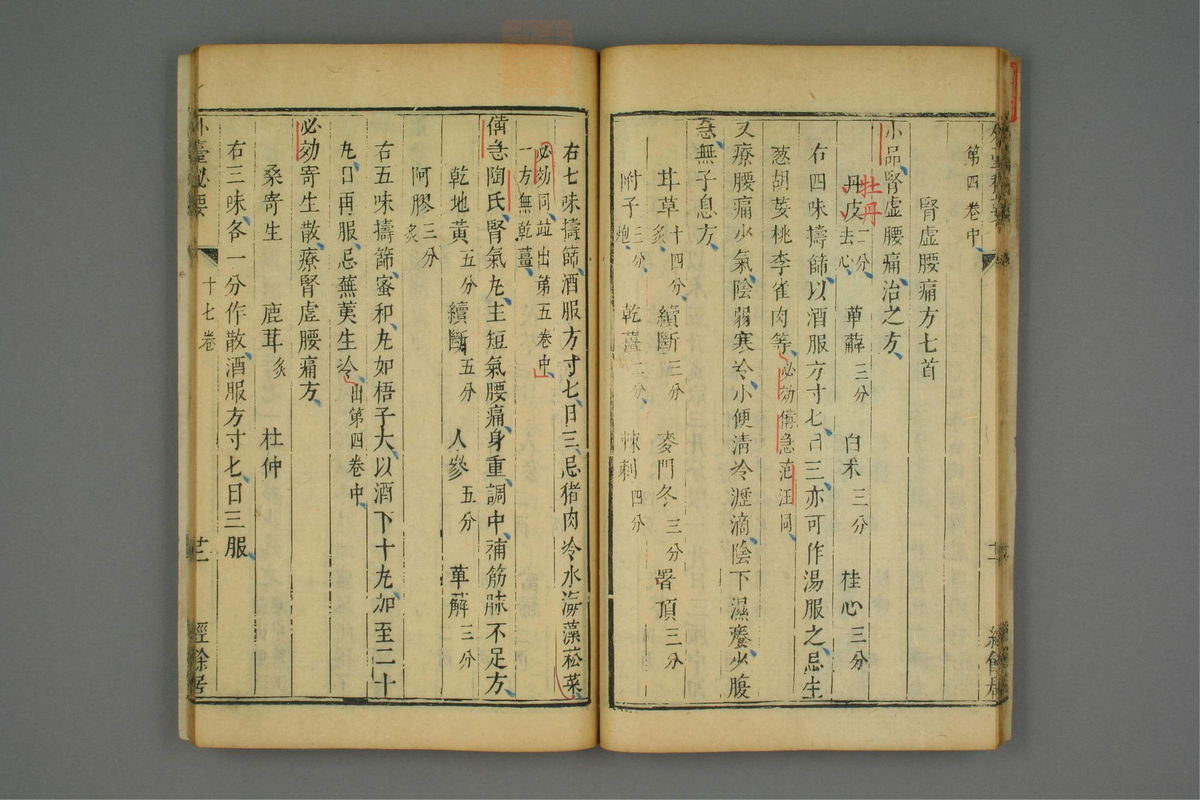 第四卷中
腎虛腰痛方七首
小品腎虛腰痛治之方
牡丹
丹皮二分去心 萆薢三分 白朮三分 桂心三分
右四味擣篩以酒服方寸七日三亦可作湯服之忌生
葱胡荽桃李雀肉等必効備急范汪同
又療腰痛少氣陰弱寒冷小便清冷瀝滴陰下濕癢少腹
急無子息方
甘草十四分炙 續斷三分 麥門冬三分 署預三分
附子三分炮 乾薑二分 棘刺四分
右七味擣篩酒服方寸七日三忌猪肉冷水海藻菘菜
必効同竝出第五卷中
一方無乾薑
備急陶氏腎氣丸主短氣腰痛身重調中補筋脉不足方
乾地黃五分 續斷五分 人參五分 萆薢三分
阿膠三分炙
右五味擣篩蜜和丸如梧子大以酒下十丸加至二十
丸日再服忌蕪荑生冷出第四卷中
必効寄生散療腎虛腰痛方
桑寄生 鹿茸炙 杜仲
右三味各一分作散酒服方寸七日三服
外臺秘要 十七卷 廿二 經餘居